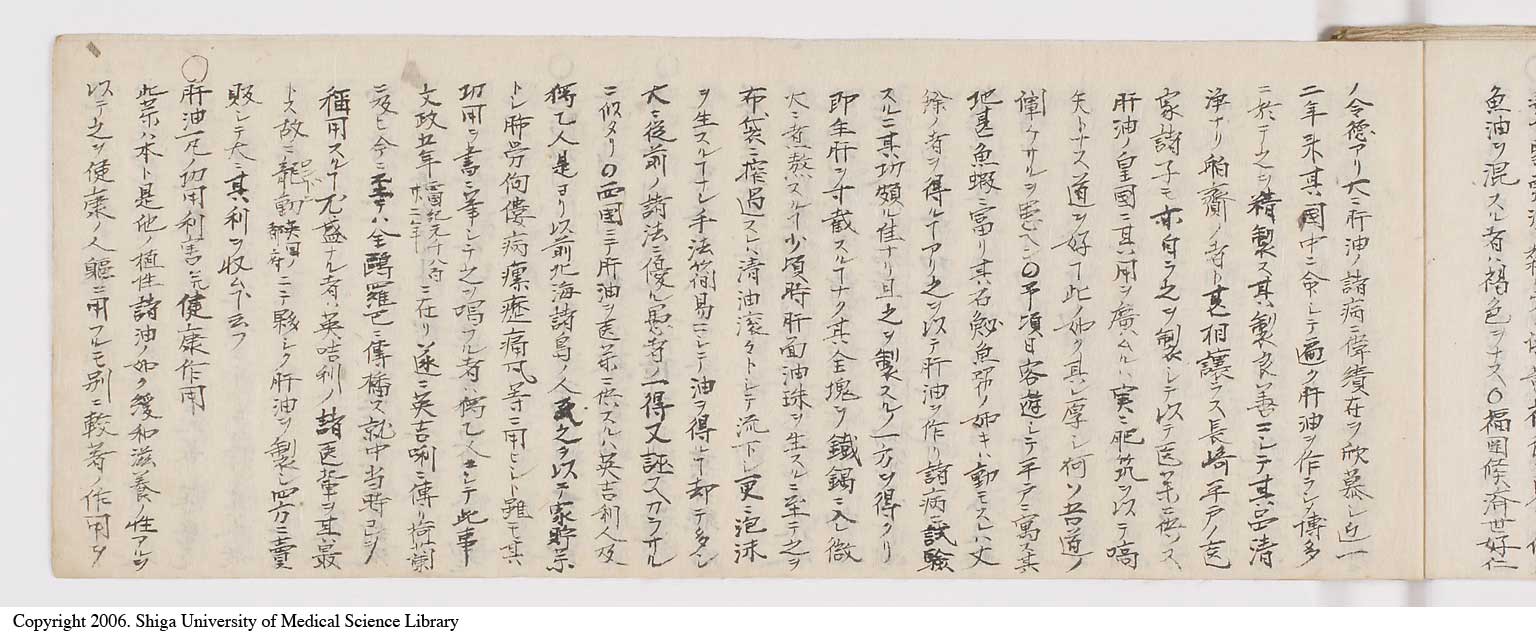 魚油ヲ混スル者ハ褐色ヲナス〇福岡侯済世好仁
ノ令徳アリ大ニ肝油ノ諸病ニ偉績在ヲ欣慕シ近一
二年来其国中ニ命シテ遍ク肝油ヲ作ラシメ博多
ニ於テ之ヲ精製ス其製良善ニシテ其品清
浄ナリ舶齎ノ者ト甚相譲ラス長崎平戸ノ医
家諸子モ亦自ラ之ヲ製シテ以テ医薬ニ供ス
肝油ノ皇国ニ其用ヲ廣ムル実ニ肥筑ヲ以テ嚆
矢トナス道ヲ好テ此ノ如ク其レ厚シ何ソ吾道ノ
闡ケサルヲ患ヘン〇予頃日客遊シテ平戸ニ寓ス其
地甚魚蝦ニ富リ其名魚等ノ如キハ動モスレハ丈
餘ノ者ヲ得ルアリ之ヲ以テ肝油ヲ作リ諸病ニ試験
スルニ其功頗ル佳ナリ且之ヲ製スルノ一方ヲ得タリ
即生肝ヲ寸截スルナク其全塊ヲ鐵鍋ニ入レ微
火ニテ熬スル少頃時肝面油珠ヲ生スルニ至テ之ヲ
布袋ニ搾過スレハ清油滾々トシテ流下シ更ニ泡沫
ヲ生スルナシ手法簡易ニシテ油ヲ得ル却テ多シ
大ニ従前ノ諸法ニ優ル愚者ノ一得又誣ヘカラサル
ニ似タリ〇西国ニテ肝油ヲ医薬ニ供スルハ英吉利人及
獨乙人是ヨリ以前北海諸島ノ人民之ヲ以テ家貯薬
トシ肺労佝僂病瘰癧痛風等ニ用ヒシト雖モ其
功用ヲ書ニ筆シテ之ヲ唱フル者ハ獨乙人ニシテ此事
文政五年西國紀元千八百廿二年ニ在リ遂ニ英吉唎ニ傳リ荷蘭
ニ及ヒ今ニ至テハ全歐羅巴ニ傳播ス就中当時已ニ
稱用スル尤盛ナル者ハ英吉利ノ諸医輩ヲ其最
トス故ニ龍動英国ノ都府ニテ夥シク肝油ヲ製シ四方ニ賣
販シテ大ニ其利ヲ収ムト云フ
〇肝油一凡ノ功用利害 健康作用
此薬ハ本ト是他ノ植性諸油ノ如ク緩和滋養ノ性アルヲ
以テ之ヲ健康ノ人軀ニ用フルモ別ニ較著ノ作用ヲ